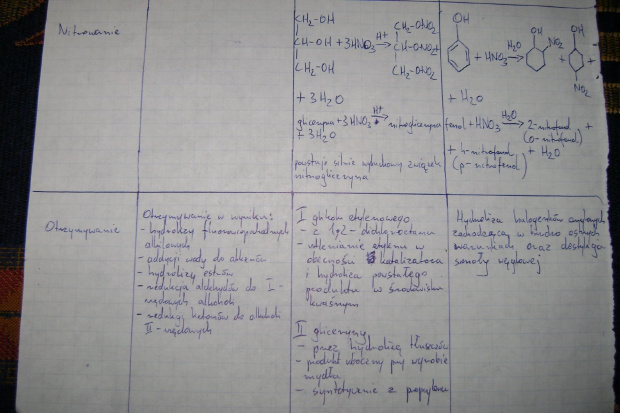 Nitrowanie
CH₂-OH CH₂-ONO₂
CH-OH + 3HNO₃ H⁺→ CH-ONO₂ +
CH₂-OH CH₂-ONO₂
+ 3H₂O
gliceryna + 3HNO₃ H⁺→ nitrogliceryna
+ 3H₂O
powstaje silnie wybuchowy związek
nitrogliceryna
OH OH OH
+ HNO₃ H₂O→ NO₂ + +
NO₂
+ H₂O
fenol + HNO₃ H₂O→ 2-nitrofenol +
(o-nitrofenol)
+ 4-nitrofenol + H₂O
(p-nitrofenol)
Otrzymywanie
Otrzymywanie w wyniku:
- hydrolizy
alkilowych
- addycji wody do alkenów
- hydrolizy estrów
- redukcja aldehydów do I-
rzędowych alkoholi
- redukcji ketonów do alkoholi
II-rzędowych
I glikolu etylenowego
- z 1,2-
- utlenianie etylenu w
obecności katalizatora
i hydroliza powstałego
produktu w środowisku
kwaśnym
II gliceryny
- przez hydrolizę tłuszczów
- produkt uboczny przy wyrobie
mydła
- syntetycznie z propylenu
Hydroliza
zachodząca w bardzo ostrych
warunkach oraz destylacja
smoły węglowej